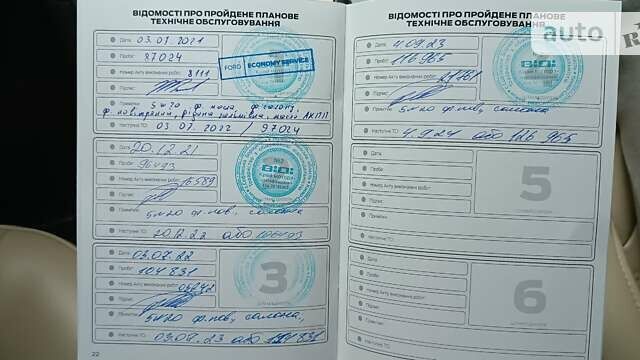 ВІДОМОСТІ ПРО ПРОЙДЕНЕ ПЛАНОВЕ
ТЕХНІЧНЕ ОБСЛУГОВУВАННЯ
Дата: 03.07.2021
Пробіг: 87024
Номер Акту виконаних робіт: 8111
Підпис:
FORD ECONOMY SERVICE
Примітки: 5w20 ф. масл, ф. салону,
ф. повітряний, рідина гальмівна, масло АКПП
Наступне ТО: 03.07.2022 / 97024
Дата: 20.12.21
Пробіг: 96493
Номер Акту виконаних робіт: 16589
Підпис:
Примітки: 5w20 ф. пов, салона
Наступне ТО: 20.12.22 або 106493
Дата: 03.07.22
Пробіг: 104831
Номер Акту виконаних робіт:
Підпис:
3
Примітки: 5w20 ф. пов, салона,
Наступне ТО: 03.07.23 або 114831
22
ВІДОМОСТІ ПРО ПРОЙДЕНЕ ПЛАНОВЕ
ТЕХНІЧНЕ ОБСЛУГОВУВАННЯ
Дата: 4.09.23
Пробіг: 116965
Номер Акту виконаних робіт:
Підпис:
Примітки: 5w20 ф. пов, салона
Наступне ТО: 4.9.24 або 126965
Дата:
Пробіг:
Номер Акту виконаних робіт:
Підпис:
5
Примітки:
Наступне ТО:
Дата:
Пробіг:
Номер Акту виконаних робіт:
Підпис:
6
Примітки:
Наступне ТО:
auto
RIA